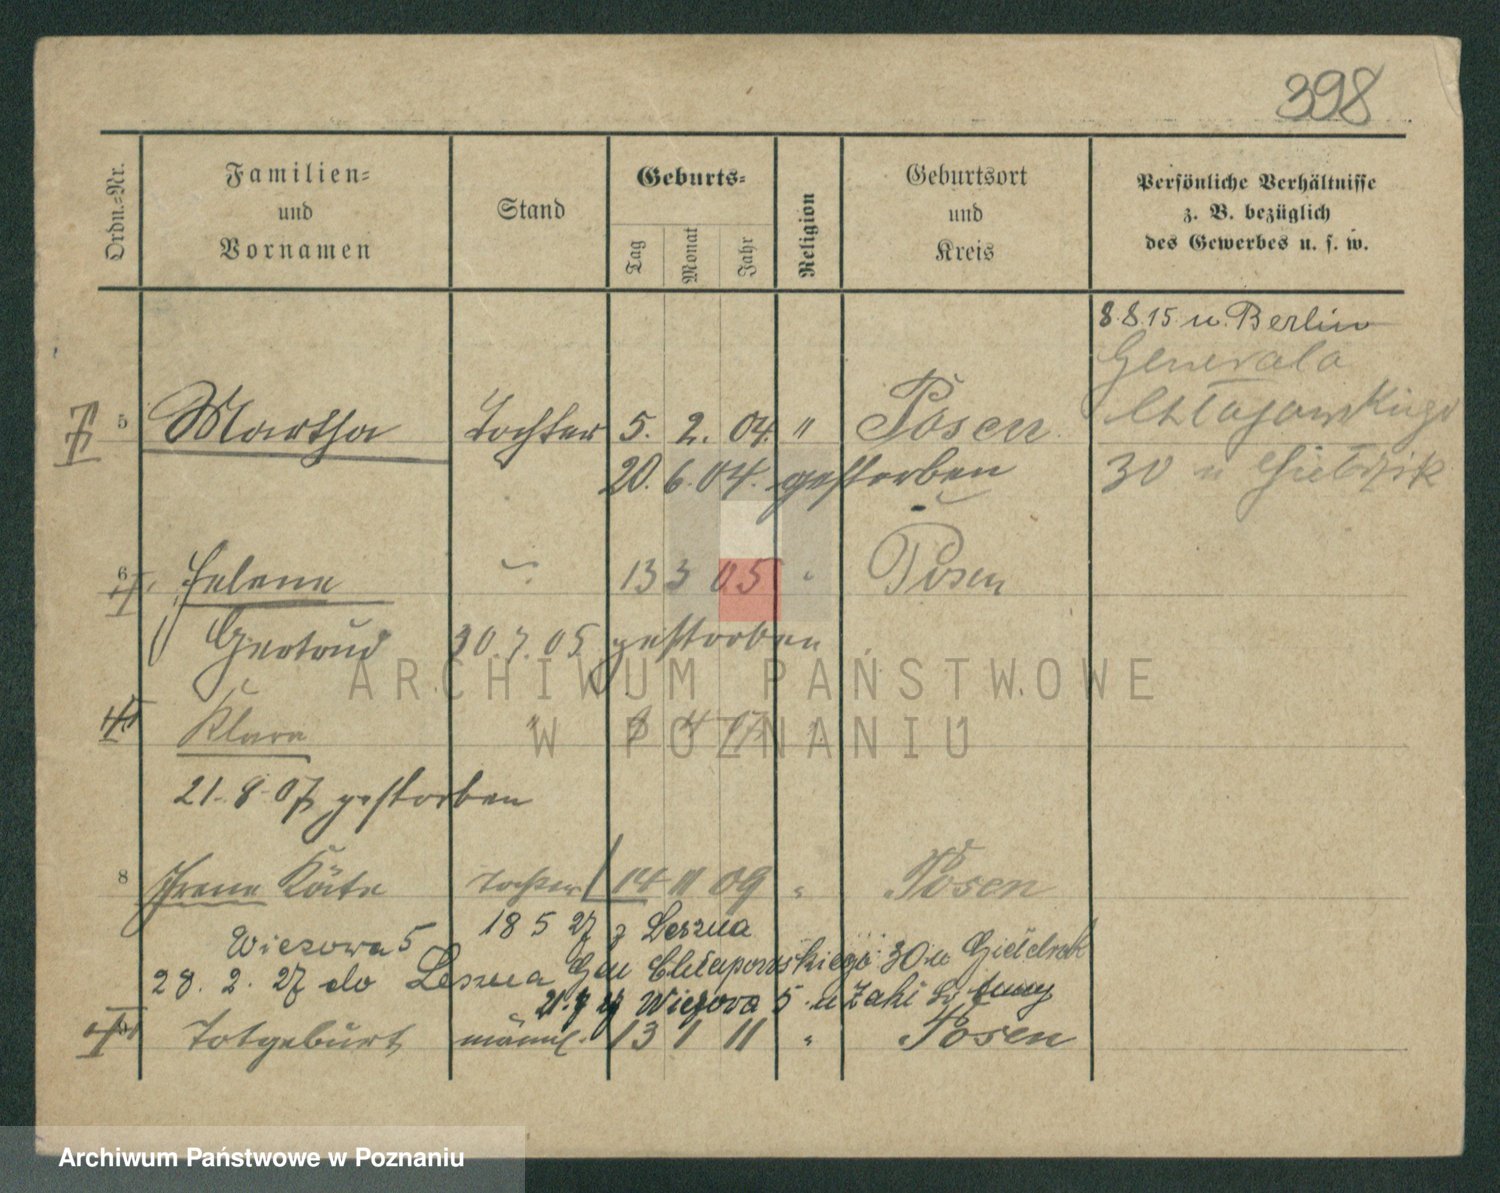 398
Ordn.-Nr.
Familien-
und
Vornamen
Stand
Geburts-
Tag
Monat
Jahr
Religion
Geburtsort
und
Kreis
Persönliche Verhältnisse
z. B. bezüglich
des Gewerbes u. s. w.
8.8.15 u. Berlin
Generala
5 Martha Tochter 5. 2. 04. " Posen
20. 6. 04. gestorben
30 u
6 Helene 13 3 05 " Posen
Gertrud 30. 7. 05 gestorben
ARCHIWUM PAŃSTWOWE
W POZNANIU
Klara " 4 07
21. 8. 07 gestorben
8 Irene Käte Tochter 14 11 09 " Posen
18 5 27 z Leszna
Wiezowa 5
28. 2. 27 do Leszna Gen Chłapowskiego 30 u
Wiezowa 5 u
Totgeburt männl. 13 1 11 " Posen
Archiwum Państwowe w Poznaniu